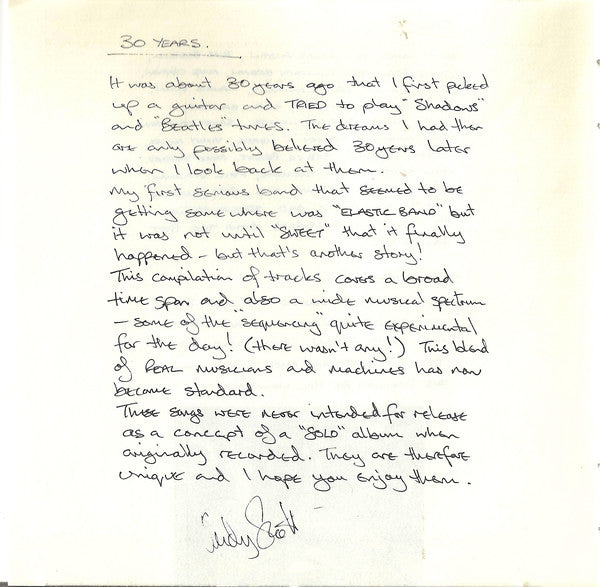 30 YEARS.
It was about 30 years ago that I first picked
up a guitar and TRIED to play "Shadows"
and "Beatles" tunes. The dreams I had then
are only possibly believed 30 years later
when I look back at them.
My first serious band that seemed to be
getting somewhere was "ELASTIC BAND" but
it was not until "SWEET" that it finally
happened - but that's another story!
This compilation of tracks covers a broad
time span and also a wide musical spectrum
- some of the "sequencing" quite experimental
for the day! (there wasn't any!) This blend
of REAL musicians and machines has now
become standard.
These songs were never intended for release
as a concept of a "SOLO" album when
originally recorded. They are therefore
unique and I hope you enjoy them.
Andy Scott